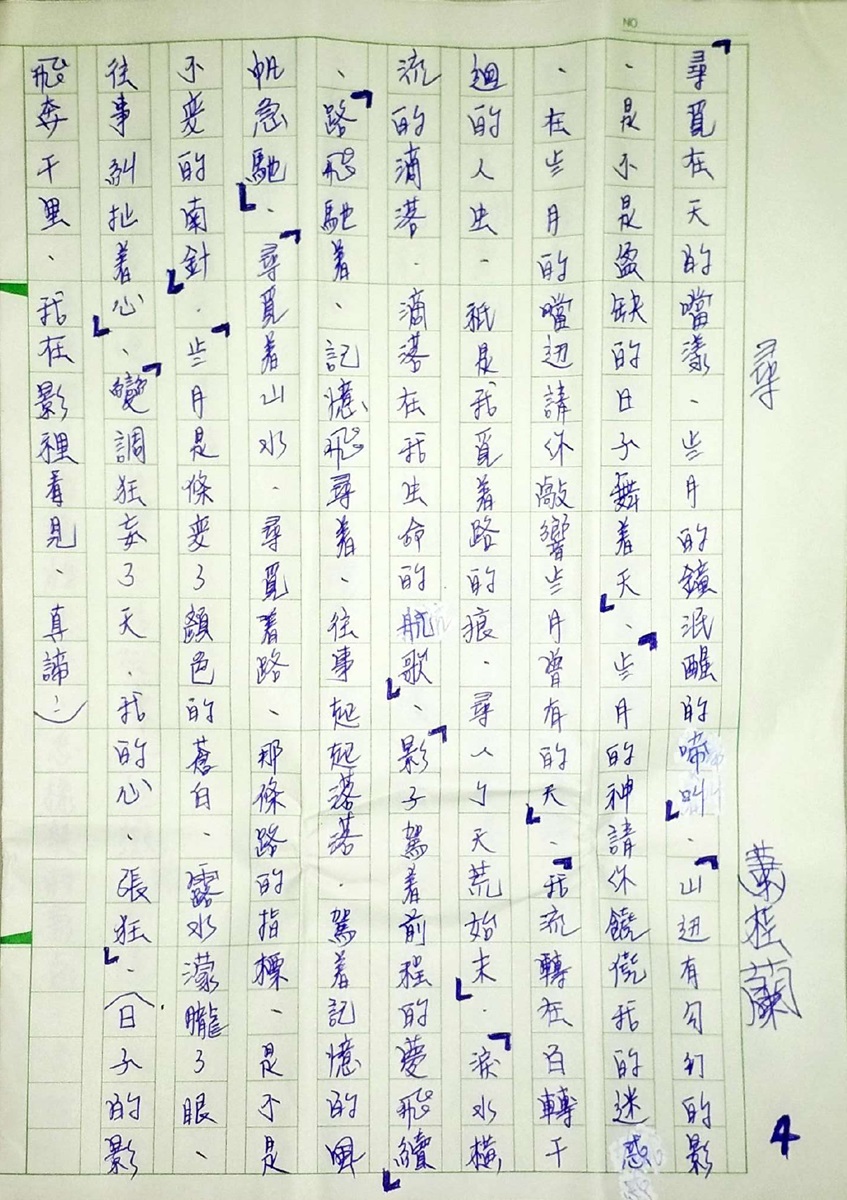 NO
尋
葉桂蘭
4
「尋覓在天的噹漾、些月的鐘泯醒的啼叫」、「山迊有勾釘的影
、是不是盈缺的日子舞着天」、「些月的神請你饒恍我的迷惑
、在些月的噹迊請你敲響些月曾有的天」、「我流轉在百轉千
迴的人虫、祇是我覓着路的痕、尋人于天荒始末」、「淚水橫
流的滴落、滴落在我虫命的航歌」、「影子駕着前程的慶飛續」
、「路飛馳着、記憶飛尋着、往事起起落落、駕着記憶的風
帆急馳」、「尋覓着山水、尋覓着路、那條路的指標、是不是
不变的南針」、「些月是條变了顏色的蒼白、露水濛朧了眼、
往事糾扯着心」、「變調狂妄了天、我的心、張狂」、（日子的影
飛奔千里、我在影裡看見、真諦！）